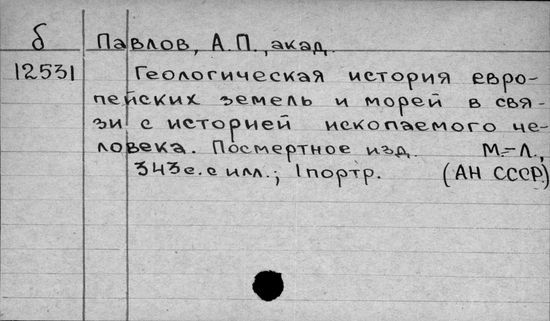 б Павлов, А.П., акад.
12531 Геологическая история евро-
пейских земель и морей в свя-
зи с историей ископаемого че-
ловека. Посмертное изд. М.-Л.,
343с. с илл.; 1 портр. (АН СССР)